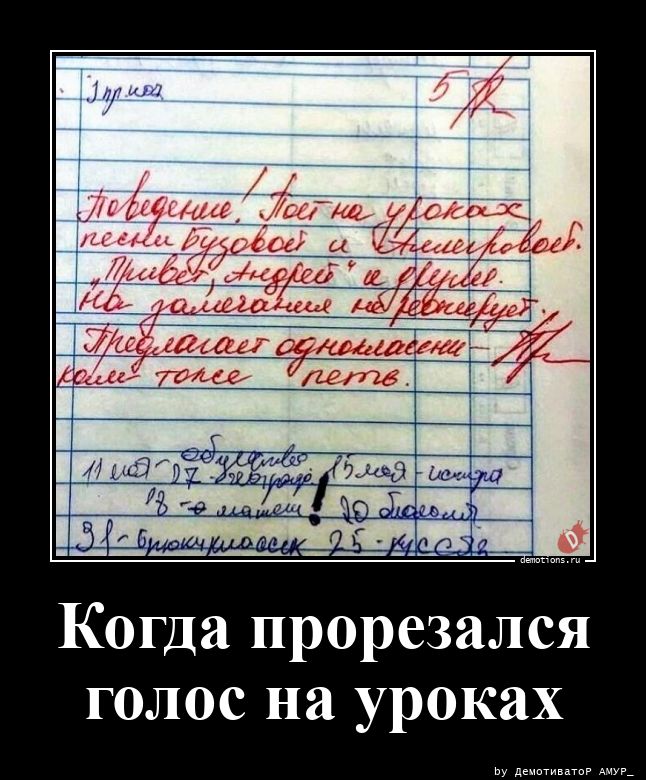 5
Поведение! Поёт на уроках
песни Бузовой и Аллегровой.
"Привет, Андрей" и другие.
На замечания не реагирует.
Предлагает одноклассни-
кам тоже петь.
11 мая - общество
15 мая - истира
17
18 - матем !
20 биолог
31 -
25 - русся
demotions.ru
Когда прорезался
голос на уроках
by ДемотиватоР АМУР_